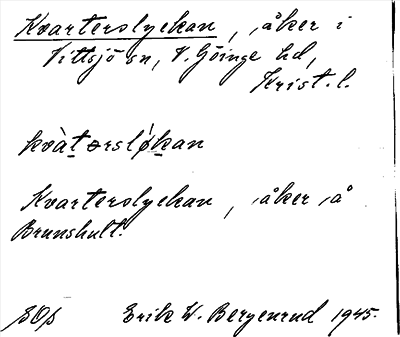 Kvarterslyckan, åker i
Vittsjö sn, V. Göinge hd,
Krist. l.
kvàtersløkan
Kvarterslyckan, åker å
Brunshult.
Erik W. Bergenrud 1945.